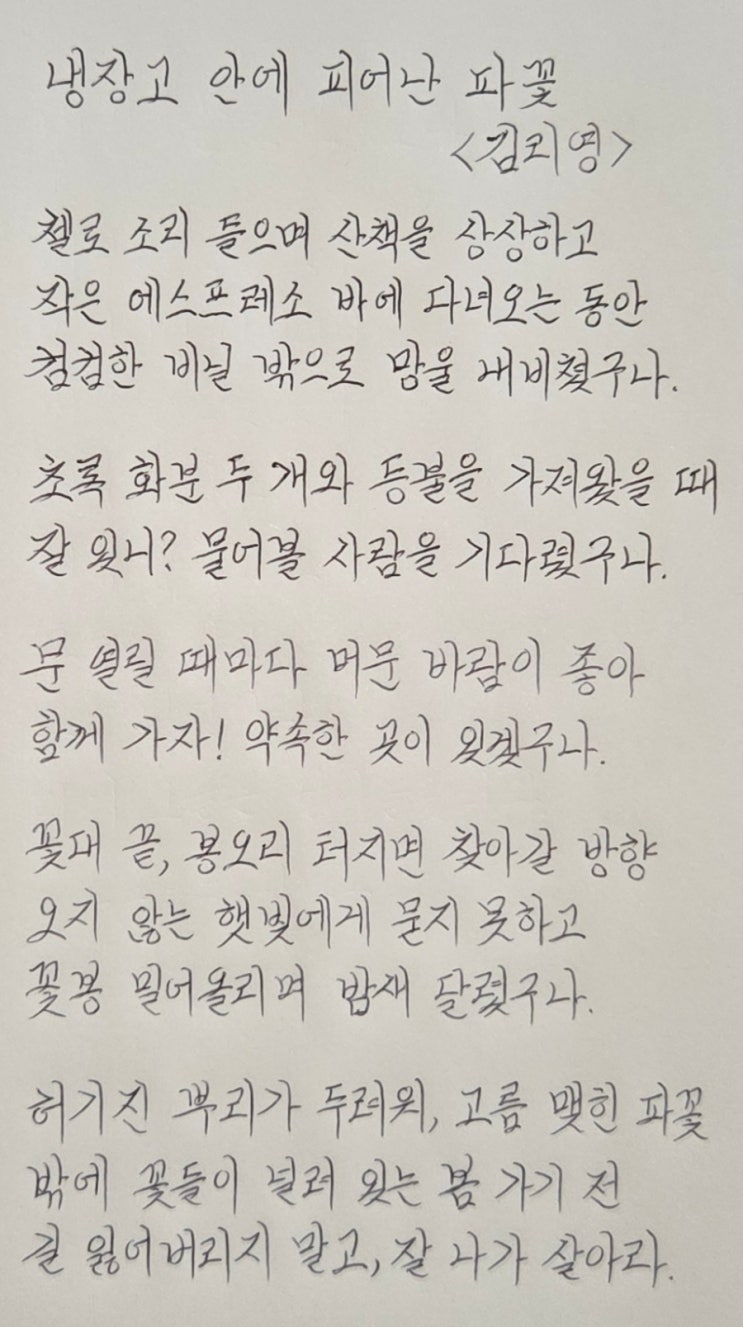 냉장고 안에 피어난 파꽃
<김리영>
첼로 소리 들으며 산책을 상상하고
작은 에스프레소 바에 다녀오는 동안
컴컴한 비닐 밖으로 망울 내비쳤구나.
초록 화분 두 개와 등불을 가져왔을 때
잘 있니? 물어볼 사람을 기다렸구나.
문 열릴 때마다 머문 바람이 좋아
함께 가자! 약속한 곳이 있겠구나.
꽃대 끝, 봉오리 터지면 찾아갈 방향
오지 않는 햇빛에게 묻지 못하고
꽃봉 밀어올리며 밤새 달렸구나.
허기진 뿌리가 두려워, 고름 맺힌 파꽃
밖에 꽃들이 널려 있는 봄 가기 전
길 잃어버리지 말고, 잘 나가 살아라.